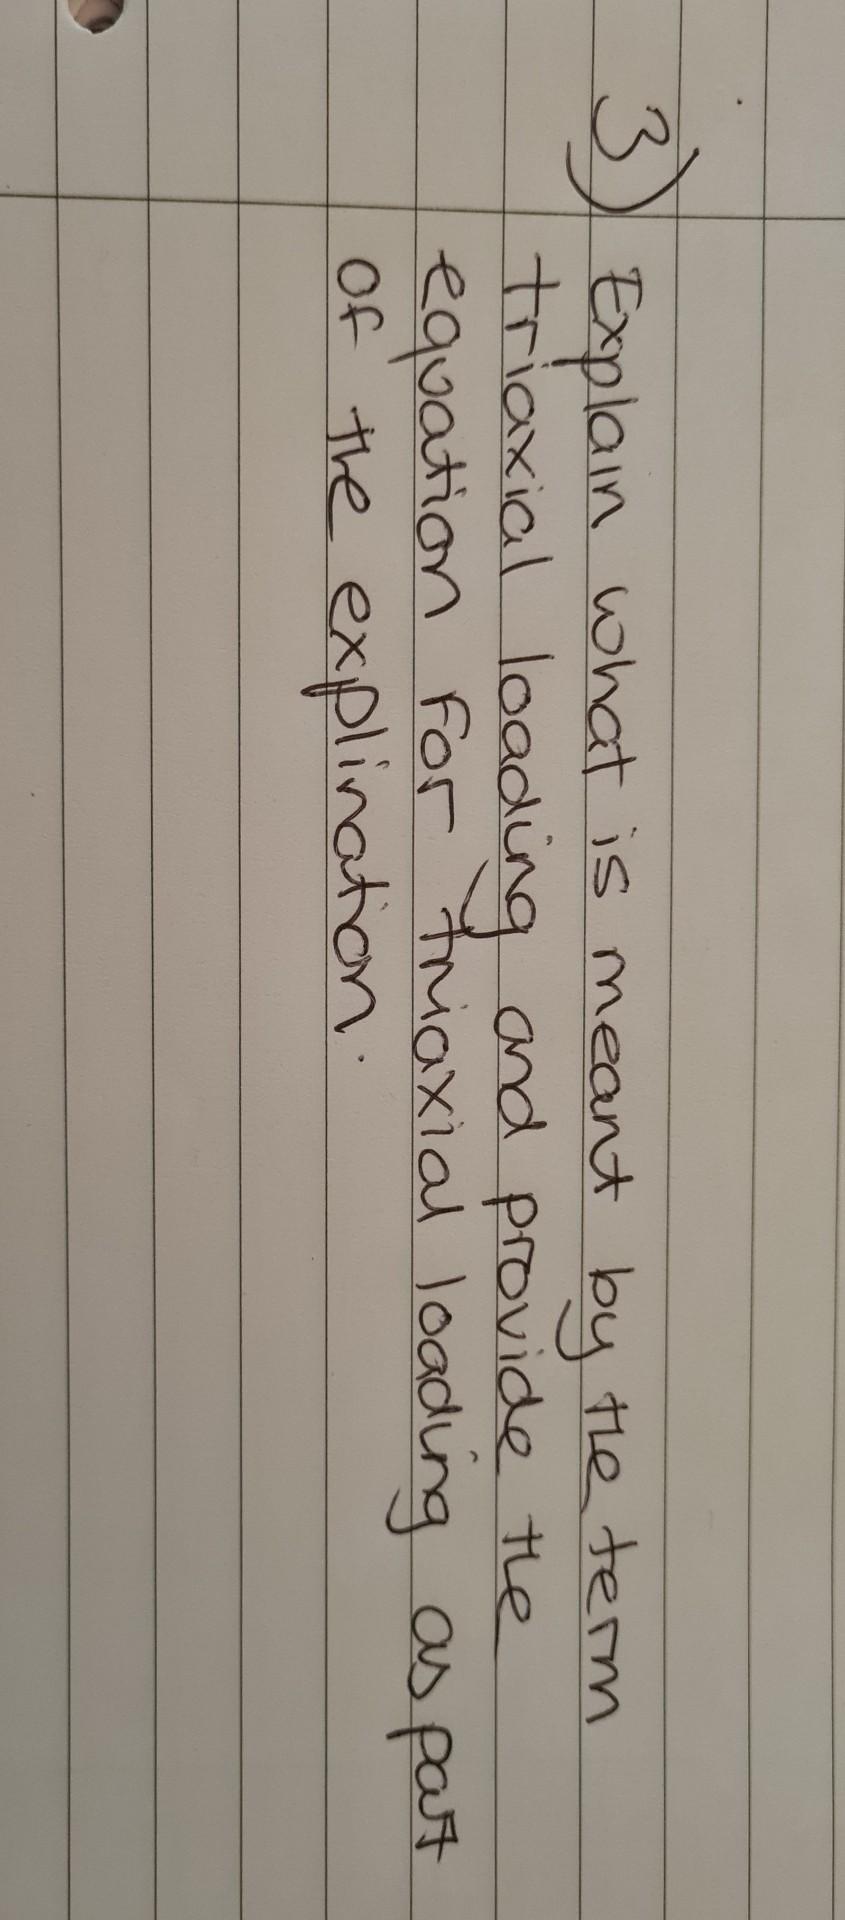 3) Explain what is meant by the term
triaxial loading and provide the
equation for triaxial loading as part
of the explination.